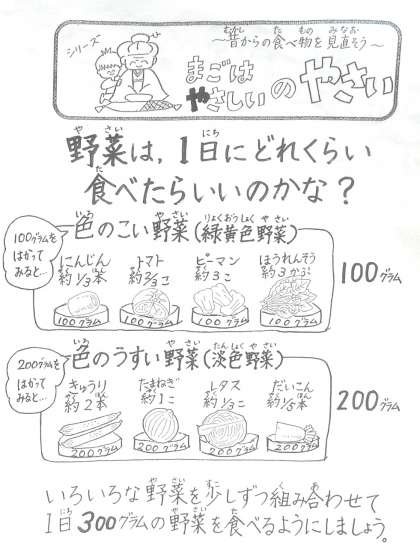 シリーズ
～昔からの食べ物を見直そう～
まごは
やさしいのやさい
野菜は，1日にどれくらい
食べたらいいのかな？
100グラムを
はかって
みると…
色のこい野菜(緑黄色野菜)
にんじん
約1/3本
トマト
約2/3こ
ピーマン
約3こ
ほうれんそう
約3かぶ
100グラム
100グラム
100グラム
100グラム
100グラム
200グラムを
はかって
みると…
色のうすい野菜(淡色野菜)
きゅうり
約2本
たまねぎ
約1こ
レタス
約1/3こ
だいこん
約1/5本
200グラム
200グラム
200グラム
200グラム
200グラム
いろいろな野菜を少しずつ組み合わせて
1日300グラムの野菜を食べるようにしましょう。